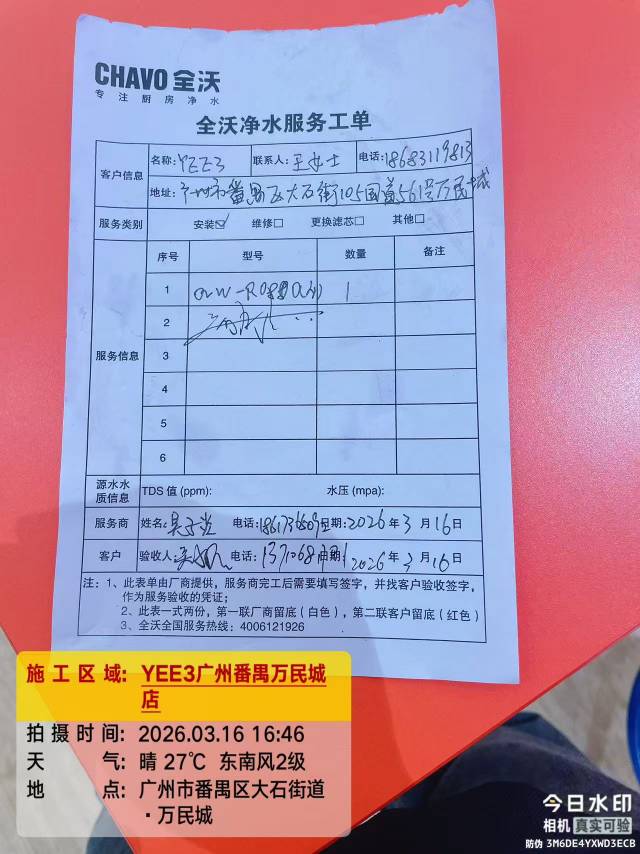 CHAVO 全沃
专注厨房净水
全沃净水服务工单
客户信息
名称: YEE3 联系人: 王女士 电话: 18683119813
地址: 广州市番禺区大石街105国道561号万民城
服务类别 安装☑ 维修☐ 更换滤芯☐ 其他☐
服务信息
序号 型号 数量 备注
1 1
2
3
4
5
6
源水水质信息 TDS 值 (ppm): 水压 (mpa):
服务商 姓名: 电话: 日期: 2026 年 3 月 16 日
客户 验收人: 电话: 日期: 2026 年 3 月 16 日
注: 1、此表单由厂商提供，服务商完工后需要填写签字，并找客户验收签字，
作为服务验收的凭证；
2、此表一式两份，第一联厂商留底（白色），第二联客户留底（红色）
3、全沃全国服务热线: 4006121926
施工区域: YEE3广州番禺万民城
店
拍摄时间: 2026.03.16 16:46
天气: 晴 27℃ 东南风2级
地点: 广州市番禺区大石街道
·万民城
今日水印
相机 真实可验
防伪 3M6DE4YXWD3ECB